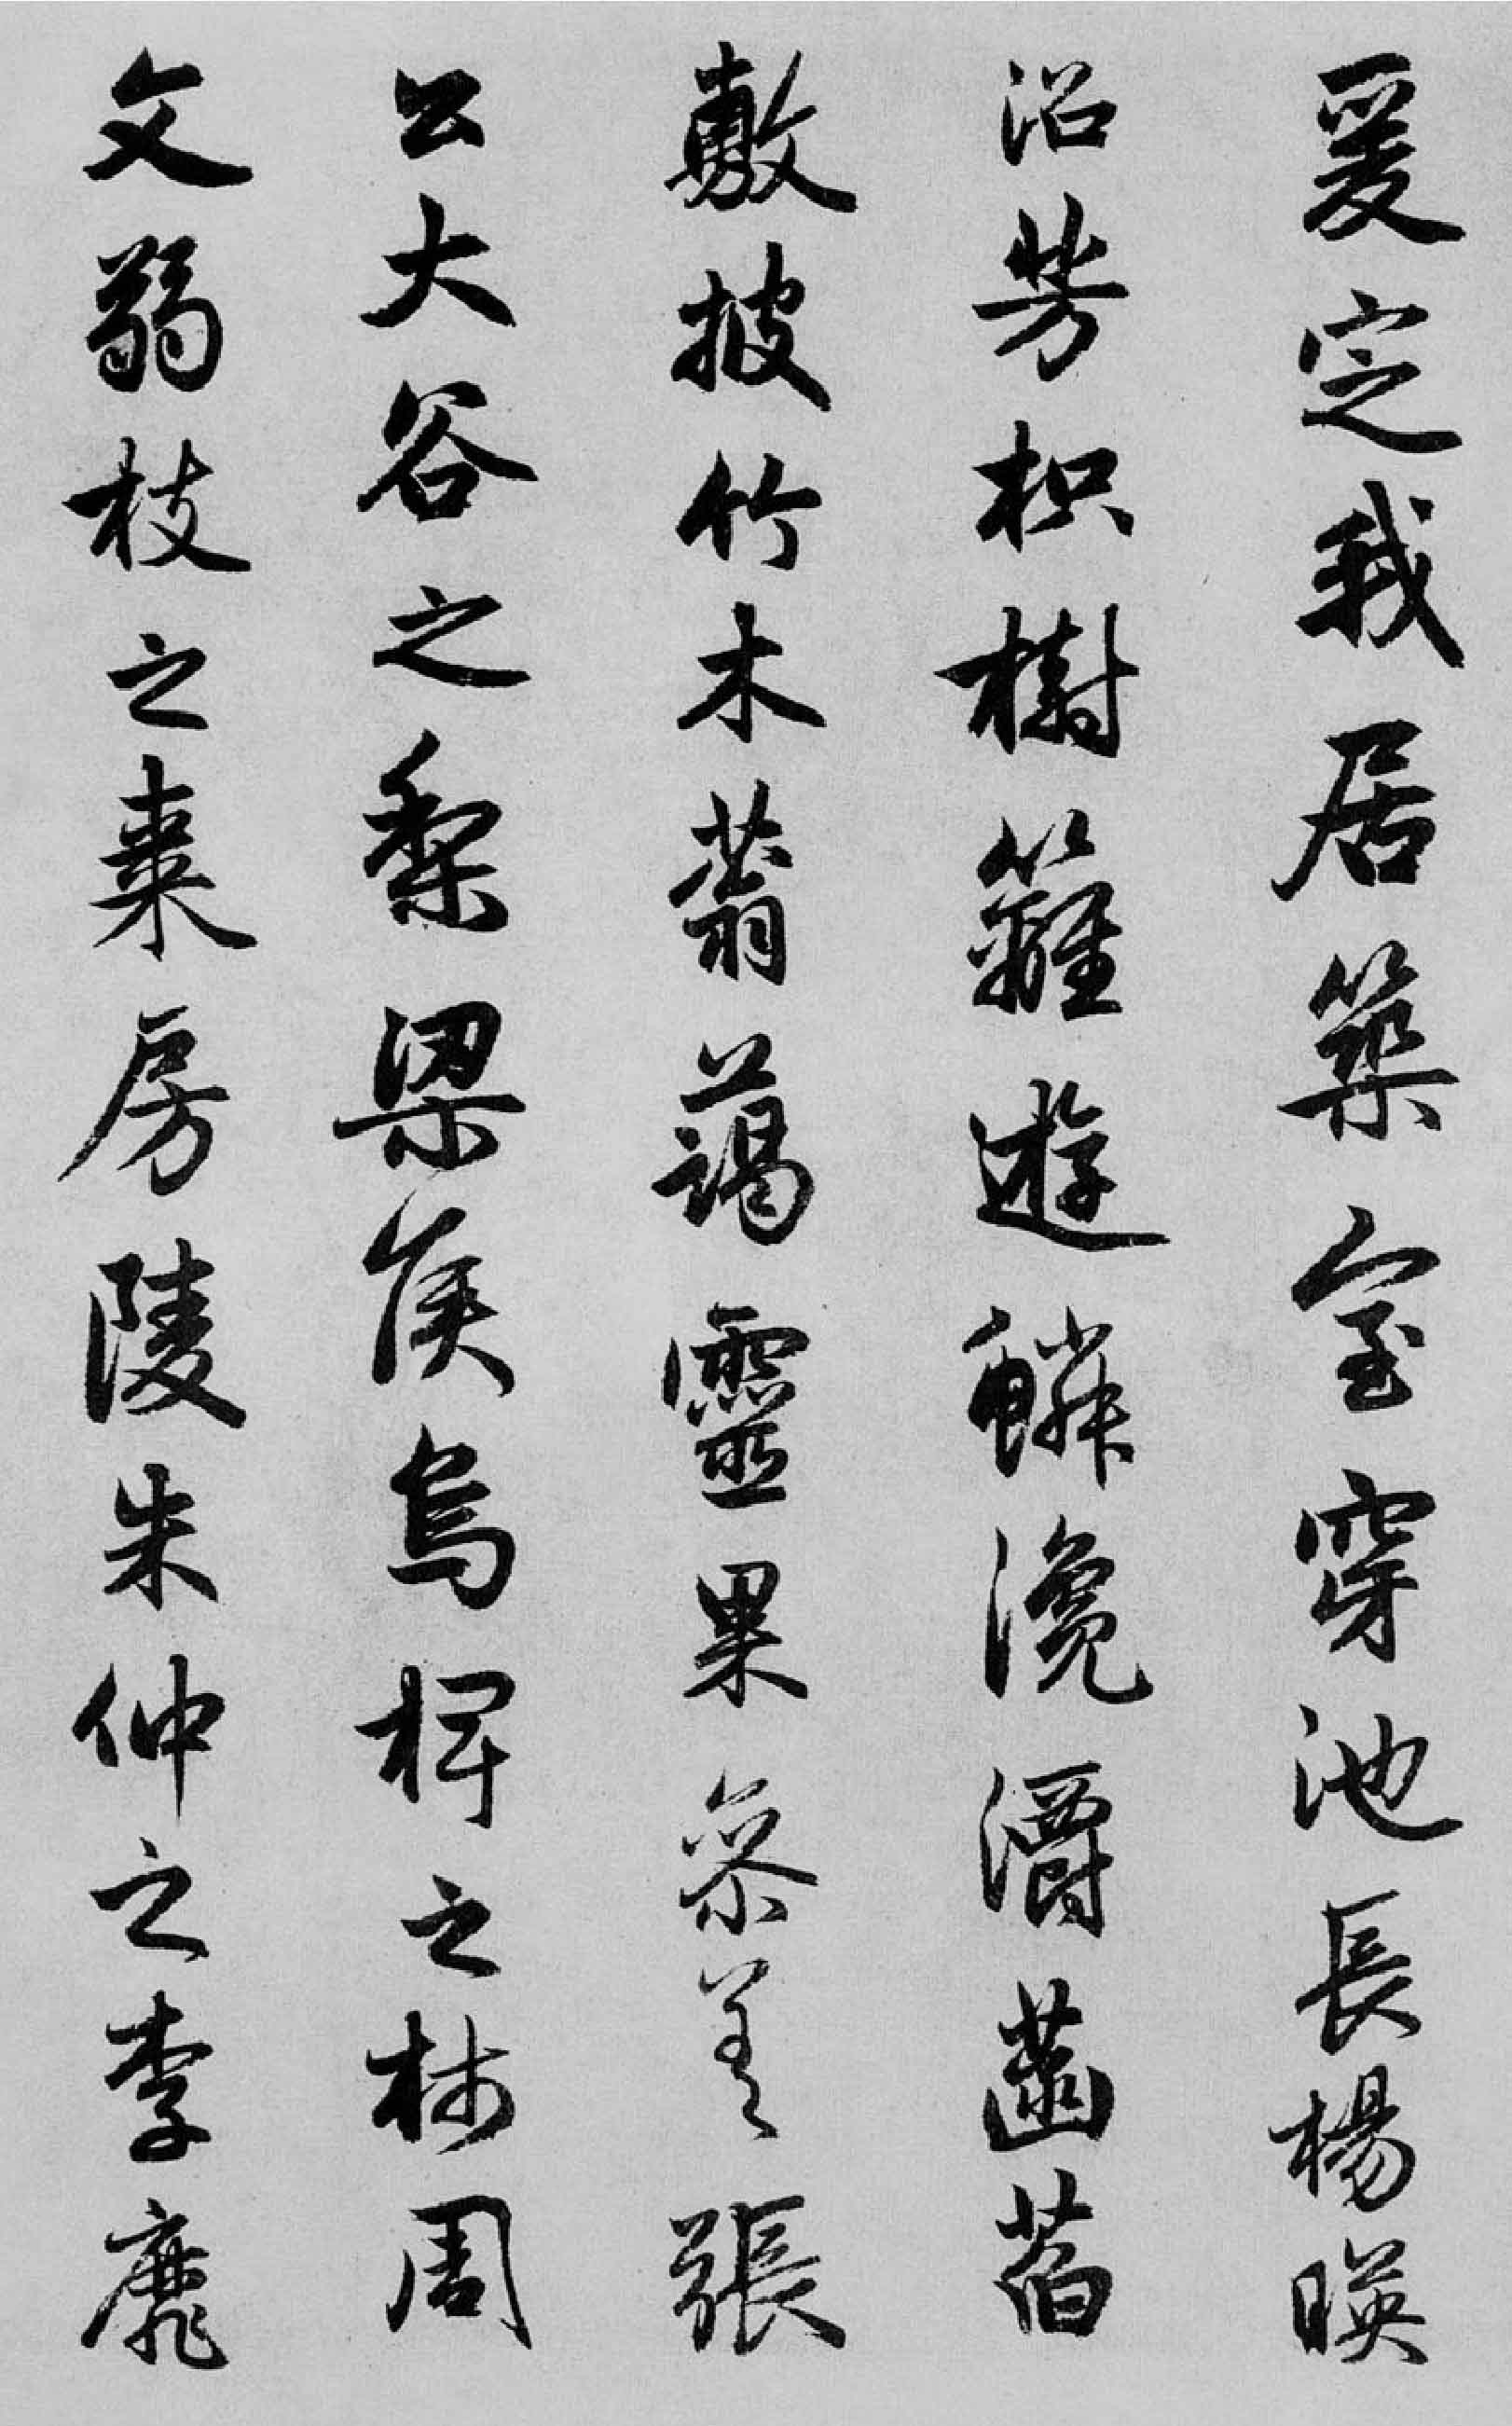 爰定我居築室穿池長楊暎
沼芳枳樹籬遊鱗瀺灂菡萏
敷披竹木蓊藹靈果參差張
公大谷之梨梁侯烏椑之柿周
文弱枝之棗房陵朱仲之李靡